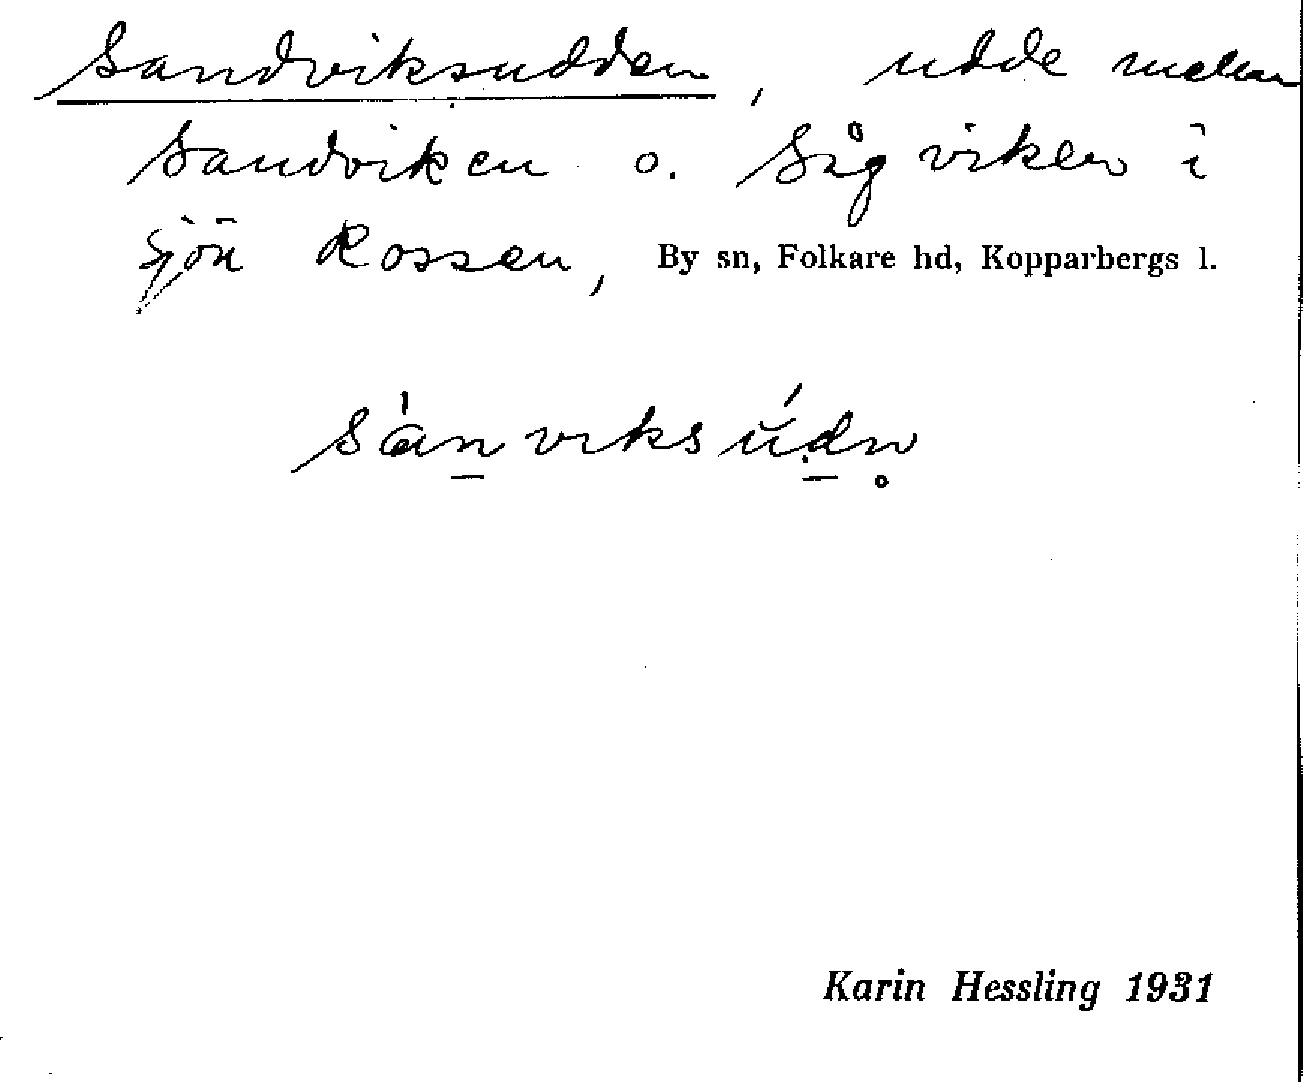 Sandviksudden, udde mellan
Sandviken o. Sågviken i
sjön Rossen, By sn, Folkare hd, Kopparbergs l.
sànviksúdn̥
Karin Hessling 1931